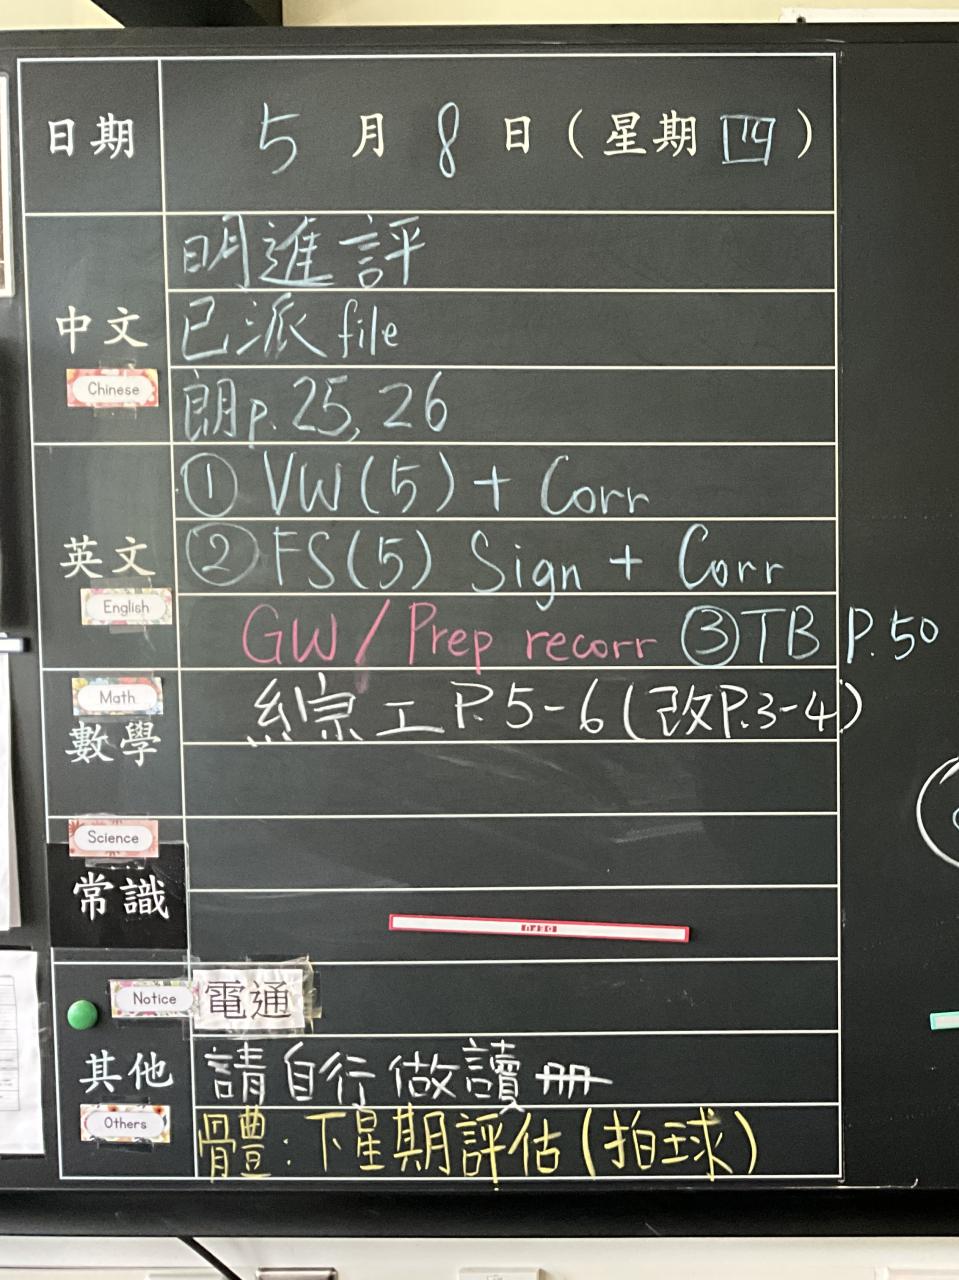 日期 5月8日(星期四)
中文 Chinese
明進評
已派file
朗p.25,26
英文 English
① VW(5)+ Corr
② FS(5) Sign + Corr
GW/Prep recorr ③TB P.50
Math 數學
綜工P.5-6(改P.3-4)
Science 常識
Notice 電通
其他 Others
請自行做讀冊
體:下星期評估(拍球)